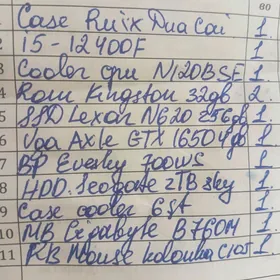 80
Case Ruix Dua Cai 1
2 i5-12400F 1
3 Cooler cpu N120BSF 1
4 Ram Kingston 32gb 2
5 SSD Lexar N620 256gb 1
6 Vga Axle GTX 1650 4gb 1
7 BP Everley 700WS 1
8 HDD. Seagate 2TB sky 1
9 Case cooler 6st 1
10 MB Gigabyte B760M 1
11 KB Mouse 1